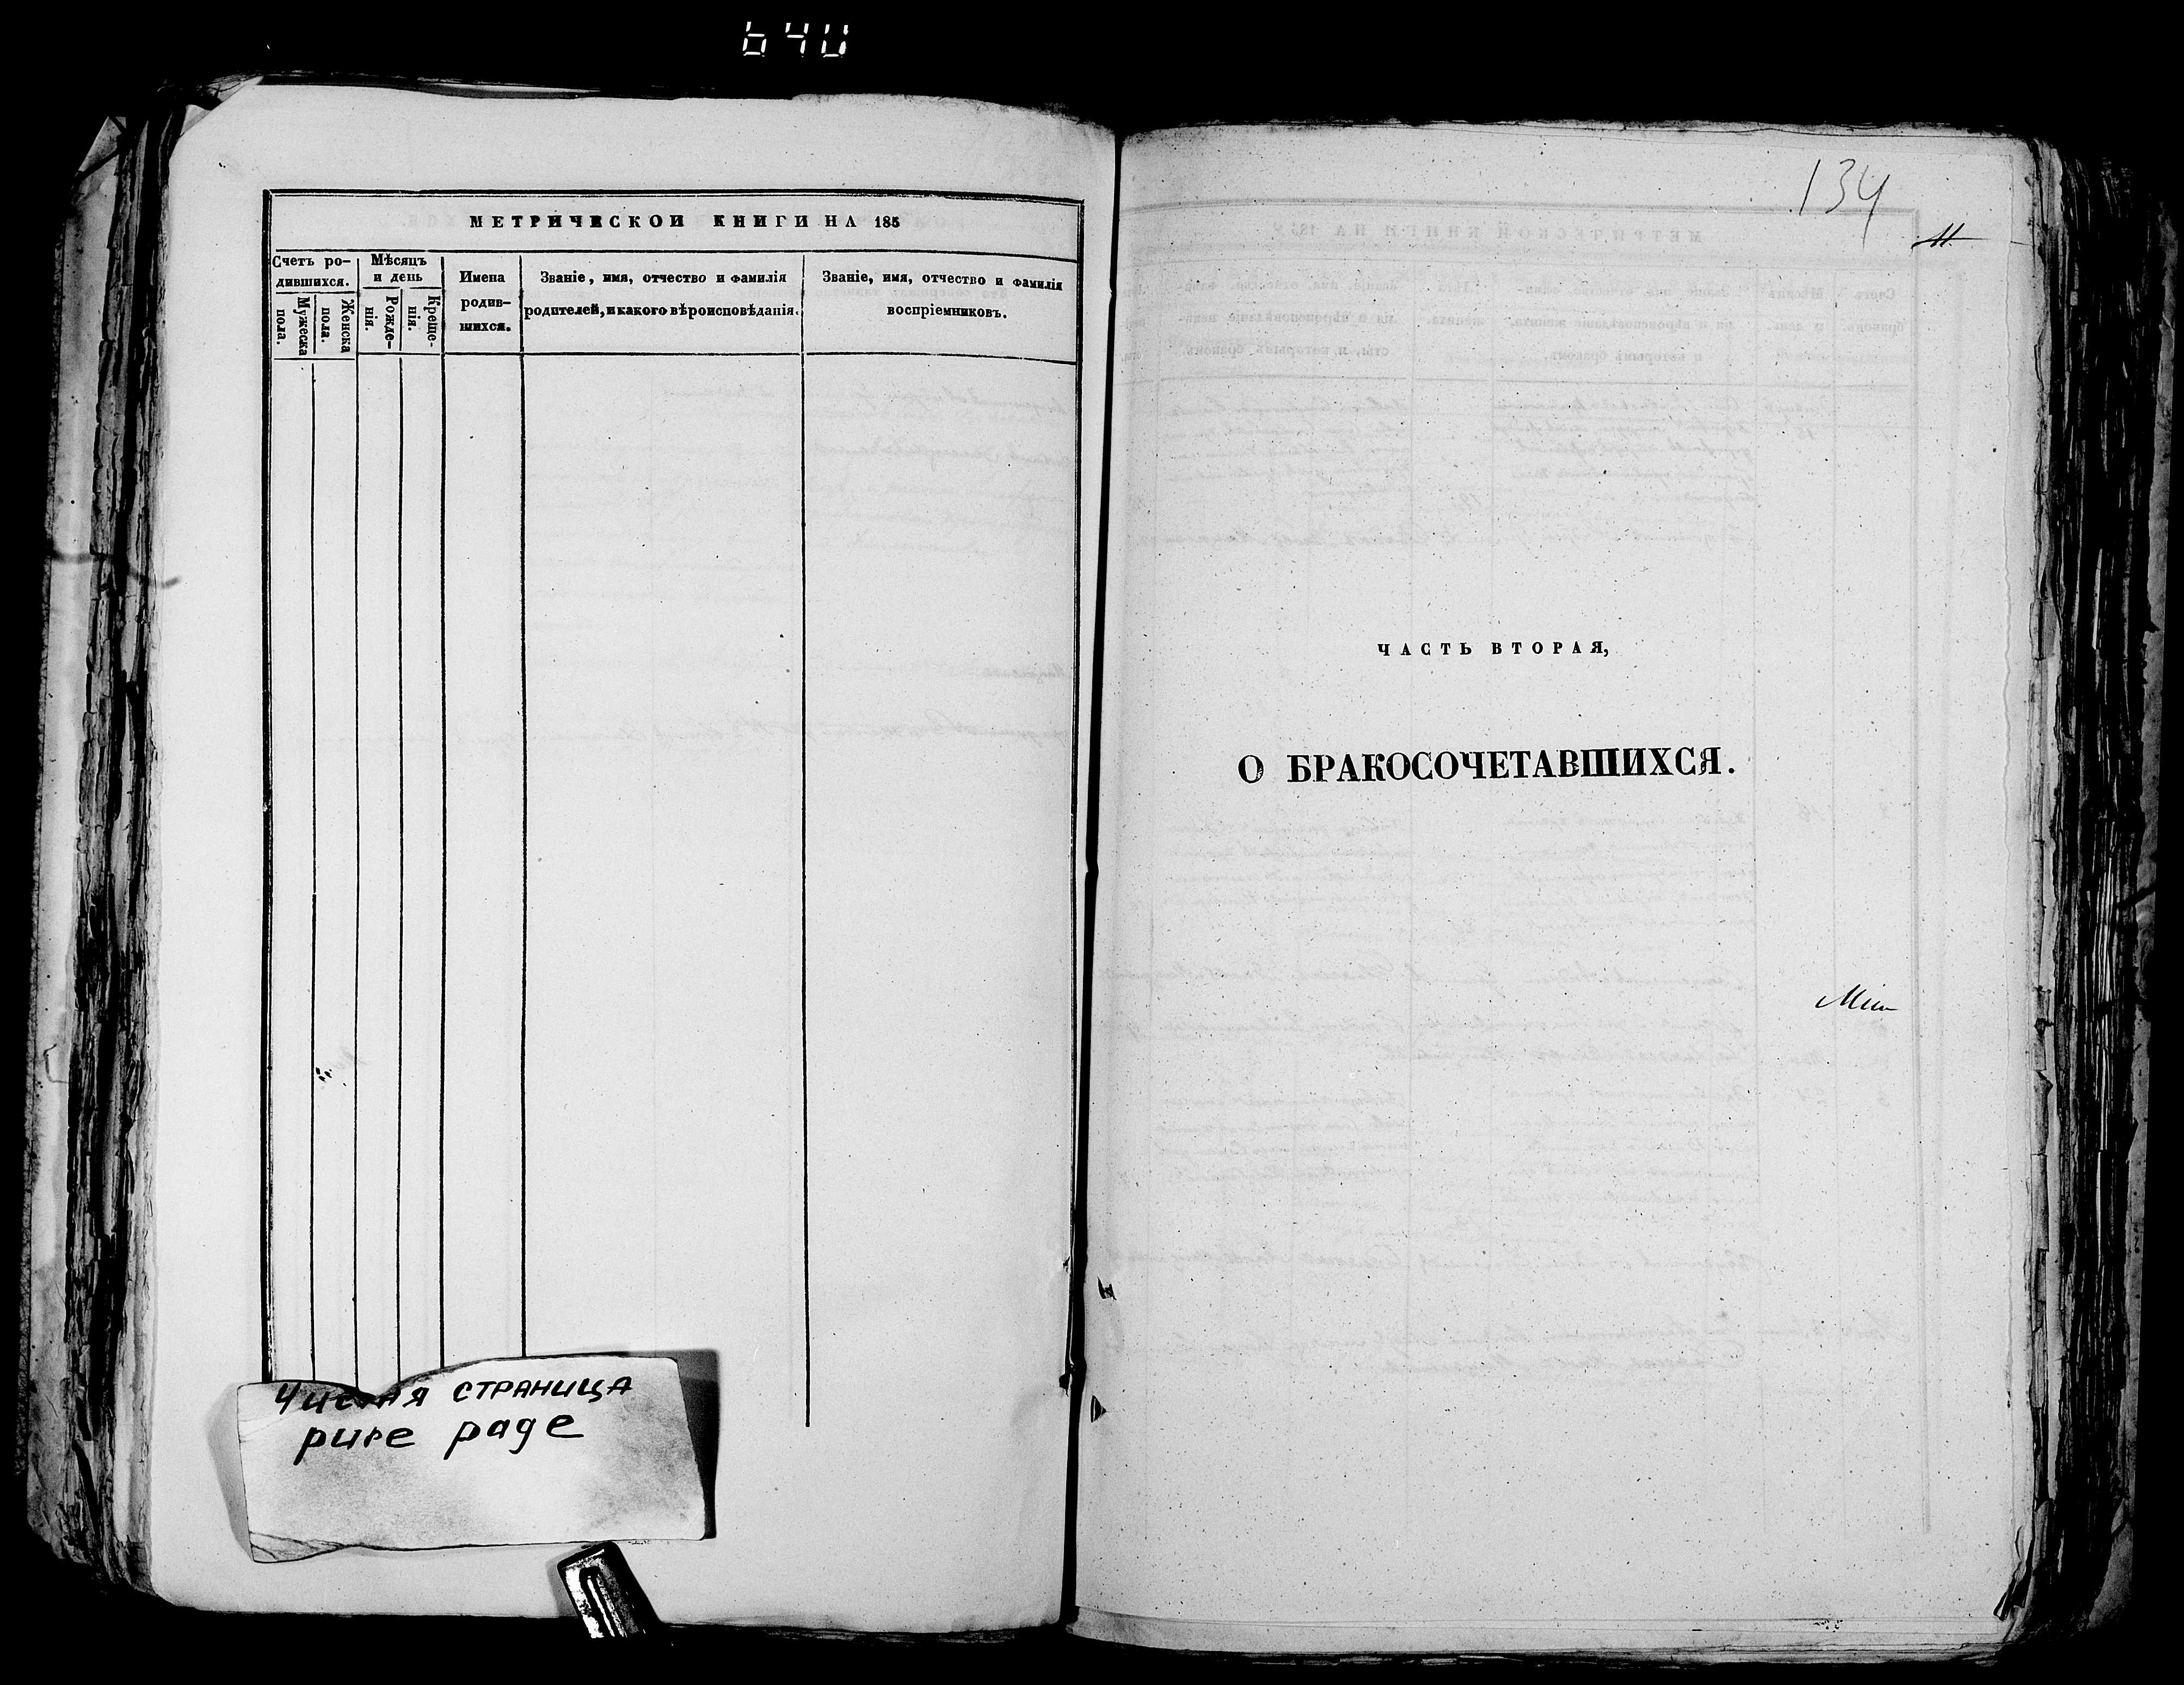 640
МЕТРИЧЕСКОЙ КНИГИ НА 185
Счетъ ро-
дившихся.
Мужеска
пола.
Женска
пола.
Мѣсяцъ
и день
Рожде-
нія.
Креще-
нія.
Имена
родив-
шихся.
Званіе, имя, отчество и фамилія
родителей, и какого вѣроисповѣданія.
Званіе, имя, отчество и фамилія
воспріемниковъ.
Чистая страница
pure page
134
11
ЧАСТЬ ВТОРАЯ,
О БРАКОСОЧЕТАВШИХСЯ.